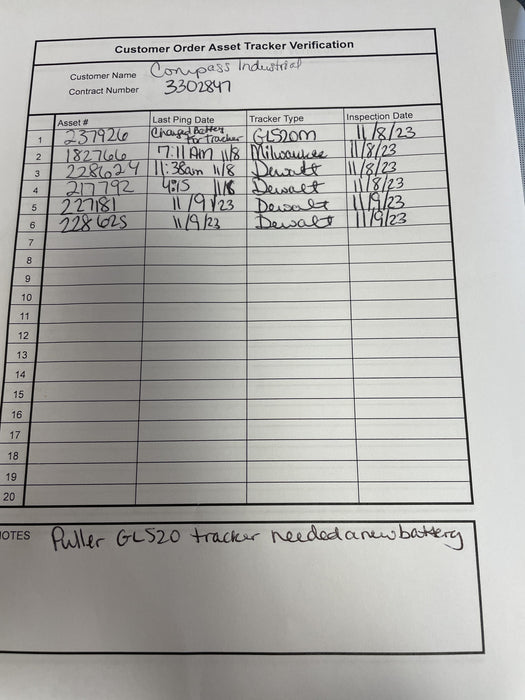 Customer Order Asset Tracker Verification
Customer Name Compass Industrial
Contract Number 3302847
Asset # Last Ping Date Tracker Type Inspection Date
1 237926 Changed Battery For Tracker GL520m 11/8/23
2 182766 7:11 AM 11/8 Milwaukee 11/8/23
3 228624 11:38am 11/8 Dewalt 11/8/23
4 217792 4:15 11/8 Dewalt 11/8/23
5 227181 11/9/23 Dewalt 11/9/23
6 228625 11/9/23 Dewalt 11/9/23
7
8
9
10
11
12
13
14
15
16
17
18
19
20
OTES Puller GL520 tracker needed a new battery